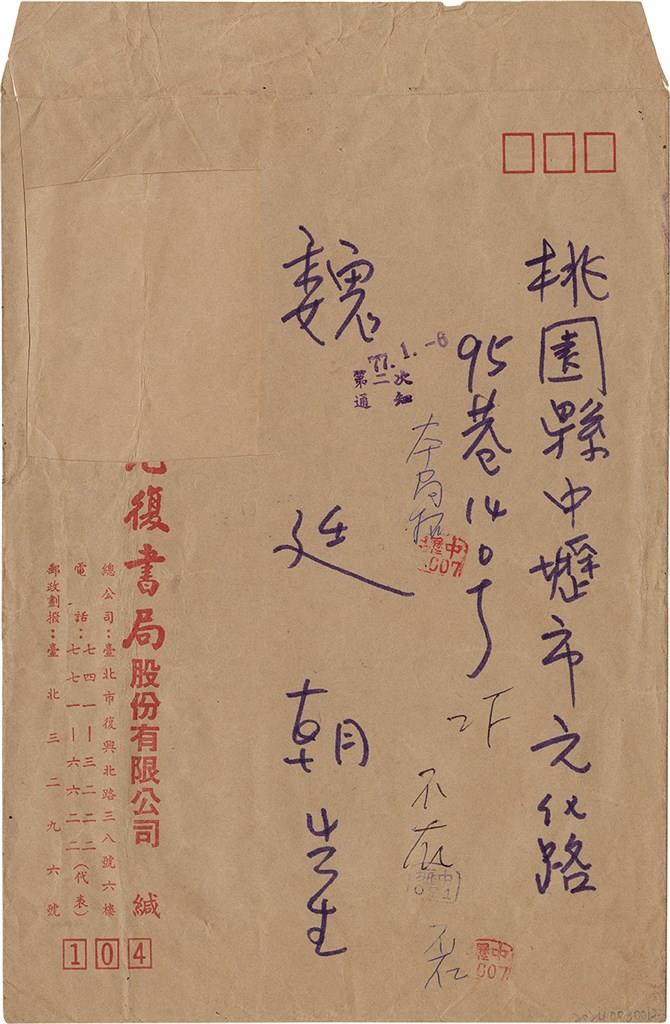 桃園縣中壢市元化路
95巷140号
魏廷朝先生
77.1.-6
第二次
通知
本局招
中壢
007
不在
中壢
不在
中壢
007
復書局股份有限公司 緘
總公司：臺北市復興北路三八號六樓
電話：七四一—三二二二
七七一—六六二二（代表）
郵政劃撥：臺北三二九六號
104